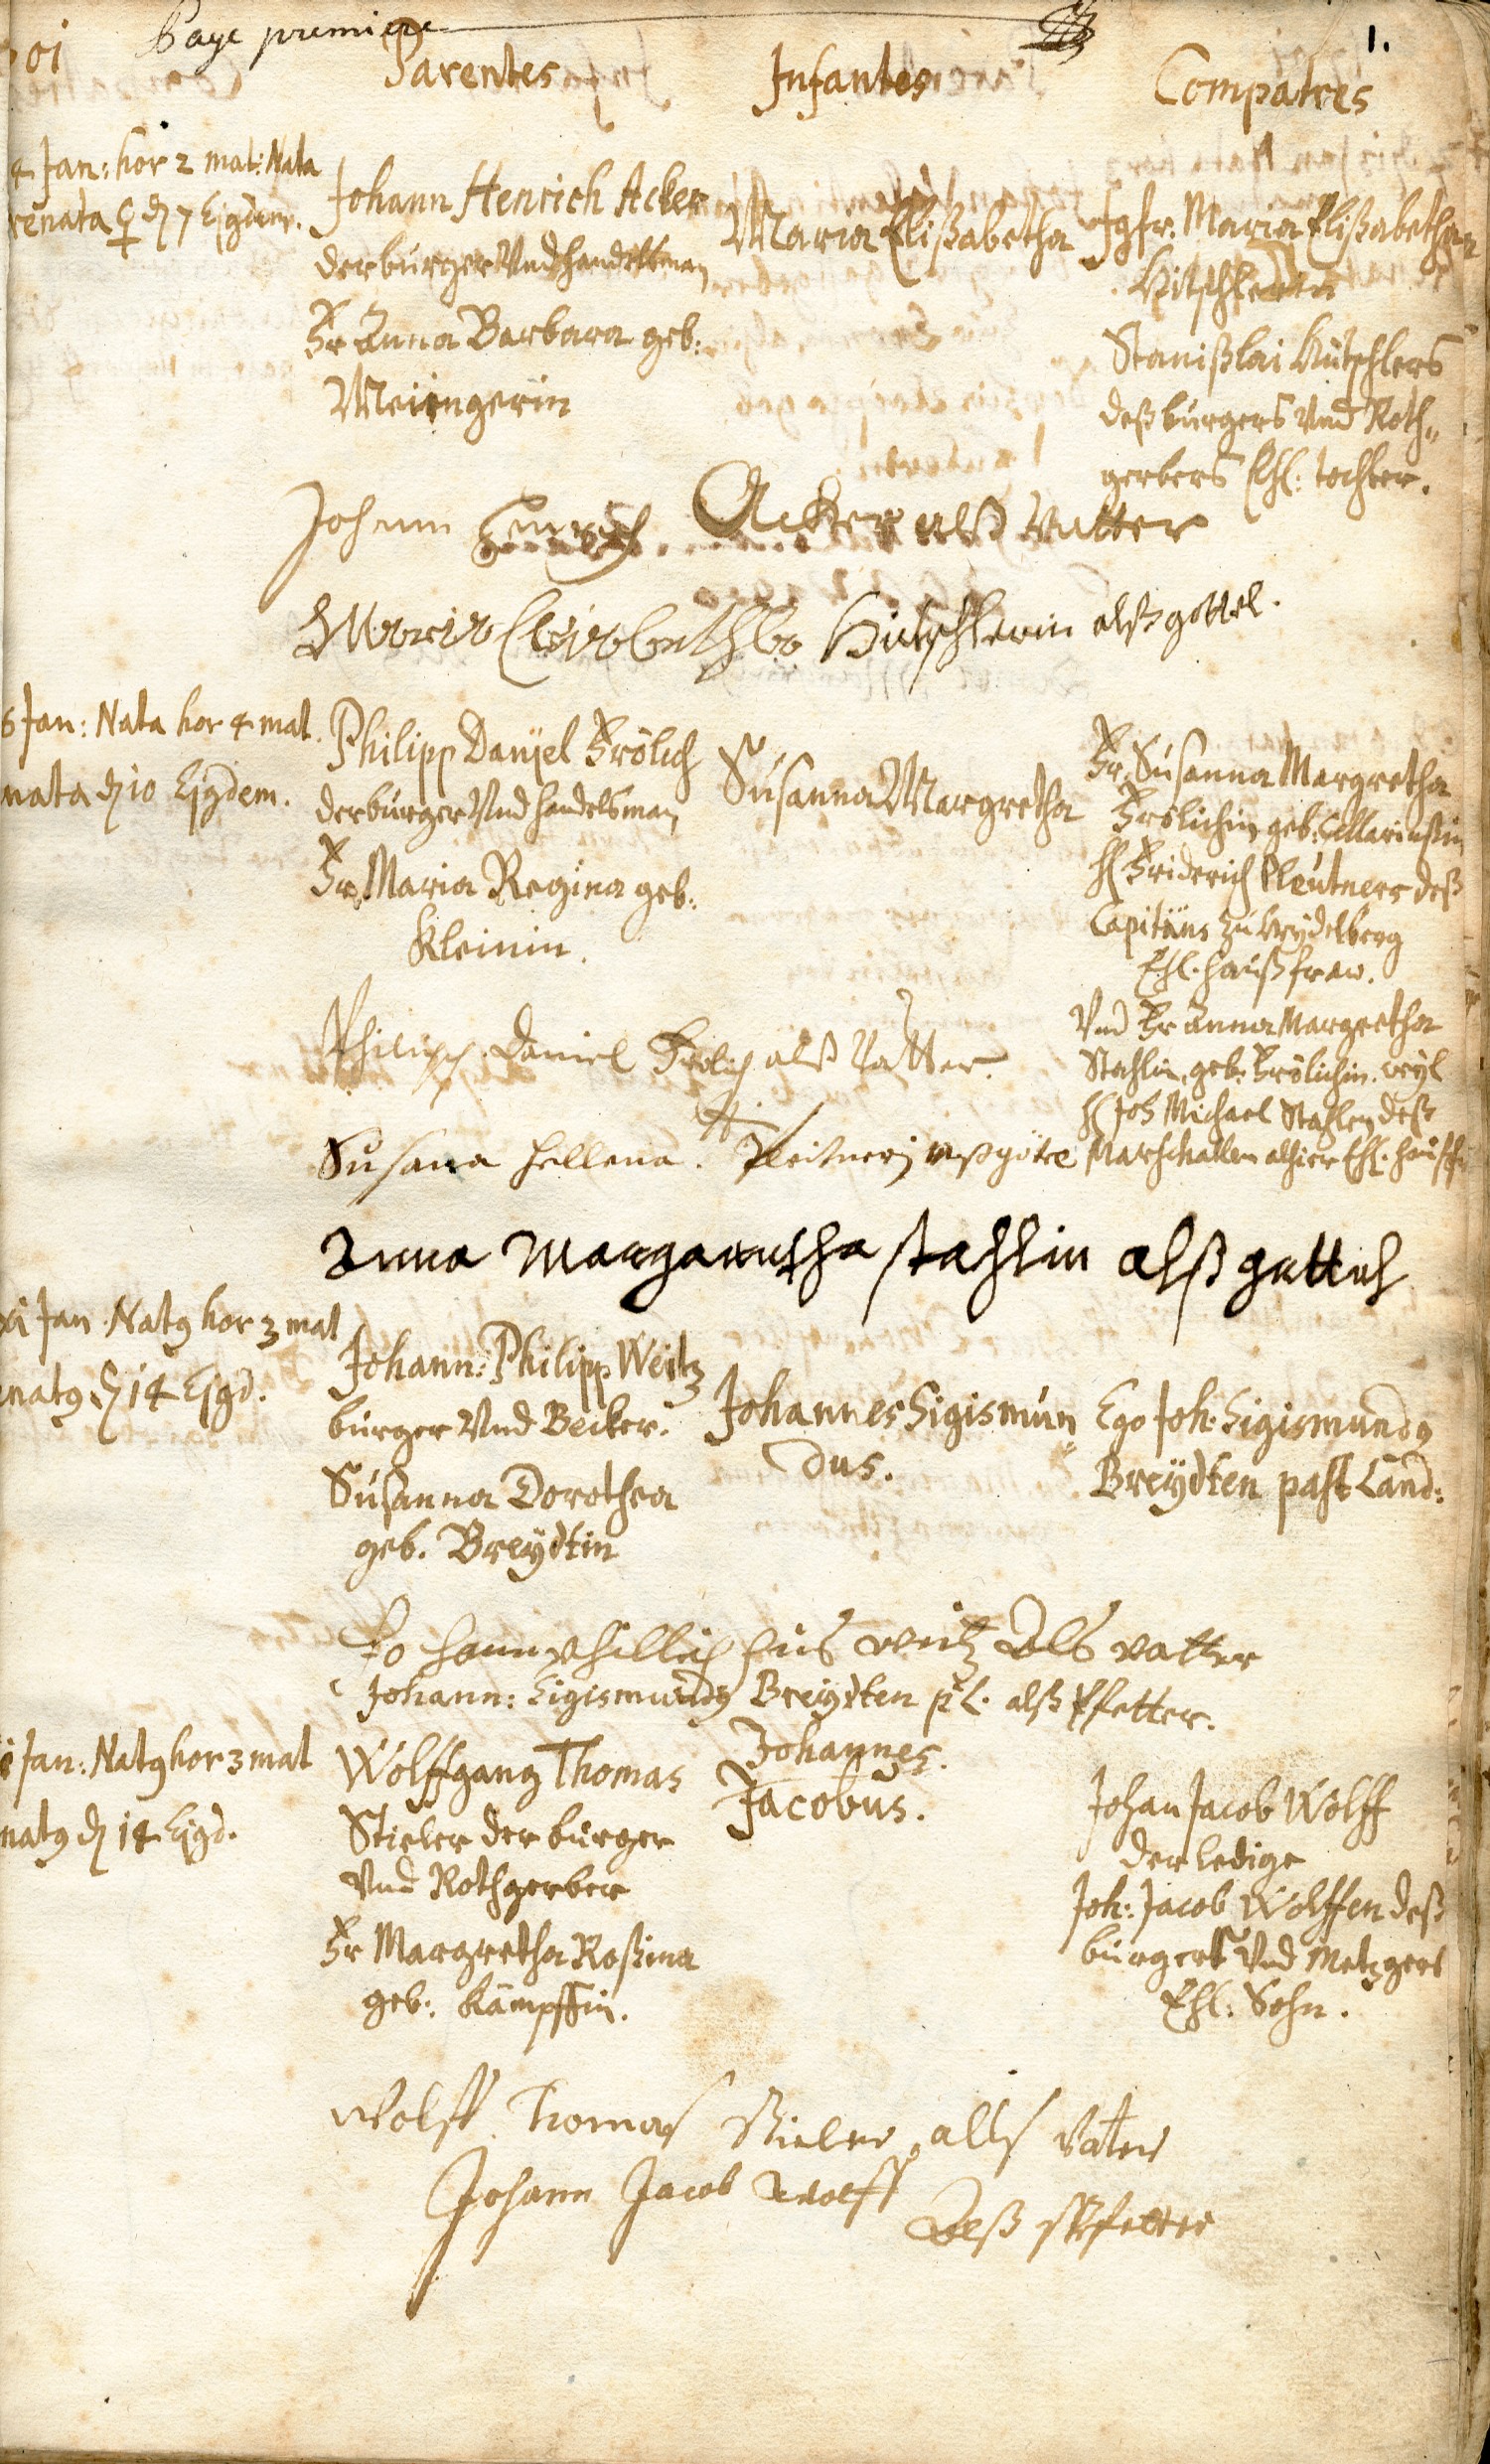 Page premiere
1.
01 Parentes Infantes Compatres
4 Jan: hor 2 mat: Nata
renata ♀ d 7 Ejgdem.
Johann Henrich Acker
der burger Vnd handelsman
Fr Anna Barbara geb:
Meiingerin
Maria Elißabetha
Jgfr. Maria Elißabetha
Kütschlerin
Stanißlai Kütschlers
deß burgers Vnd Roth„
gerbers Ehl: tochter.
Johann Henrich Acker alß Vatter
Maria Elisabetha Kütschlerin alß gottel.
6 Jan: Nata hor 4 mat.
nata d 10 Ejgdem.
Philipp Daniel Frölich
der burger Vnd handelsman
Fr Maria Regina geb:
Kleinin.
Susanna Margretha
Fr. Susanna Margretha
Frölichin geb:
H Friderich Pleutners deß
Capitäns zu Heydelberg
Ehl. haußfraw.
Vnd Fr Anna Margretha
Stahlin, geb: Frölichin. weyl
H Joh Michael Stahlen deß
Marschallen alhier Ehl. haußfr
Philipp Daniel Frölich alß Vatter.
Susana Hellena. Pleitnerin alß göttel
Anna Margaretha stahlin alß gottel
xi Jan Natq hor 3 mat
natq d 14 Ejgd.
Johann: Philipp Weitz
burger Vnd Becker.
Susanna Dorothea
geb. Breydtin
Johannes Sigismun„
dus.
Ego Joh: Sigismundq
Breydten past Land:
Johann phillip weitz Als vatter
Johann: Sigismundq Breydten p. L. alß Pfetter.
Jan: Natq hor 3 mat
natq d 14 Ejgd.
Wolffgang Thomas
Stieler der burger
Vnd Rothgerber
Fr Margretha Roßina
geb: Kämpffin.
Johannes.
Jacobus.
Johan Jacob Wolff
der ledige
Joh: Jacob Wolffen deß
burgers Vnd Metzgers
Ehl: Sohn.
Wolff Thomas Stieler alls Vater
Johann Jacob Wolff
Alß Pfetter